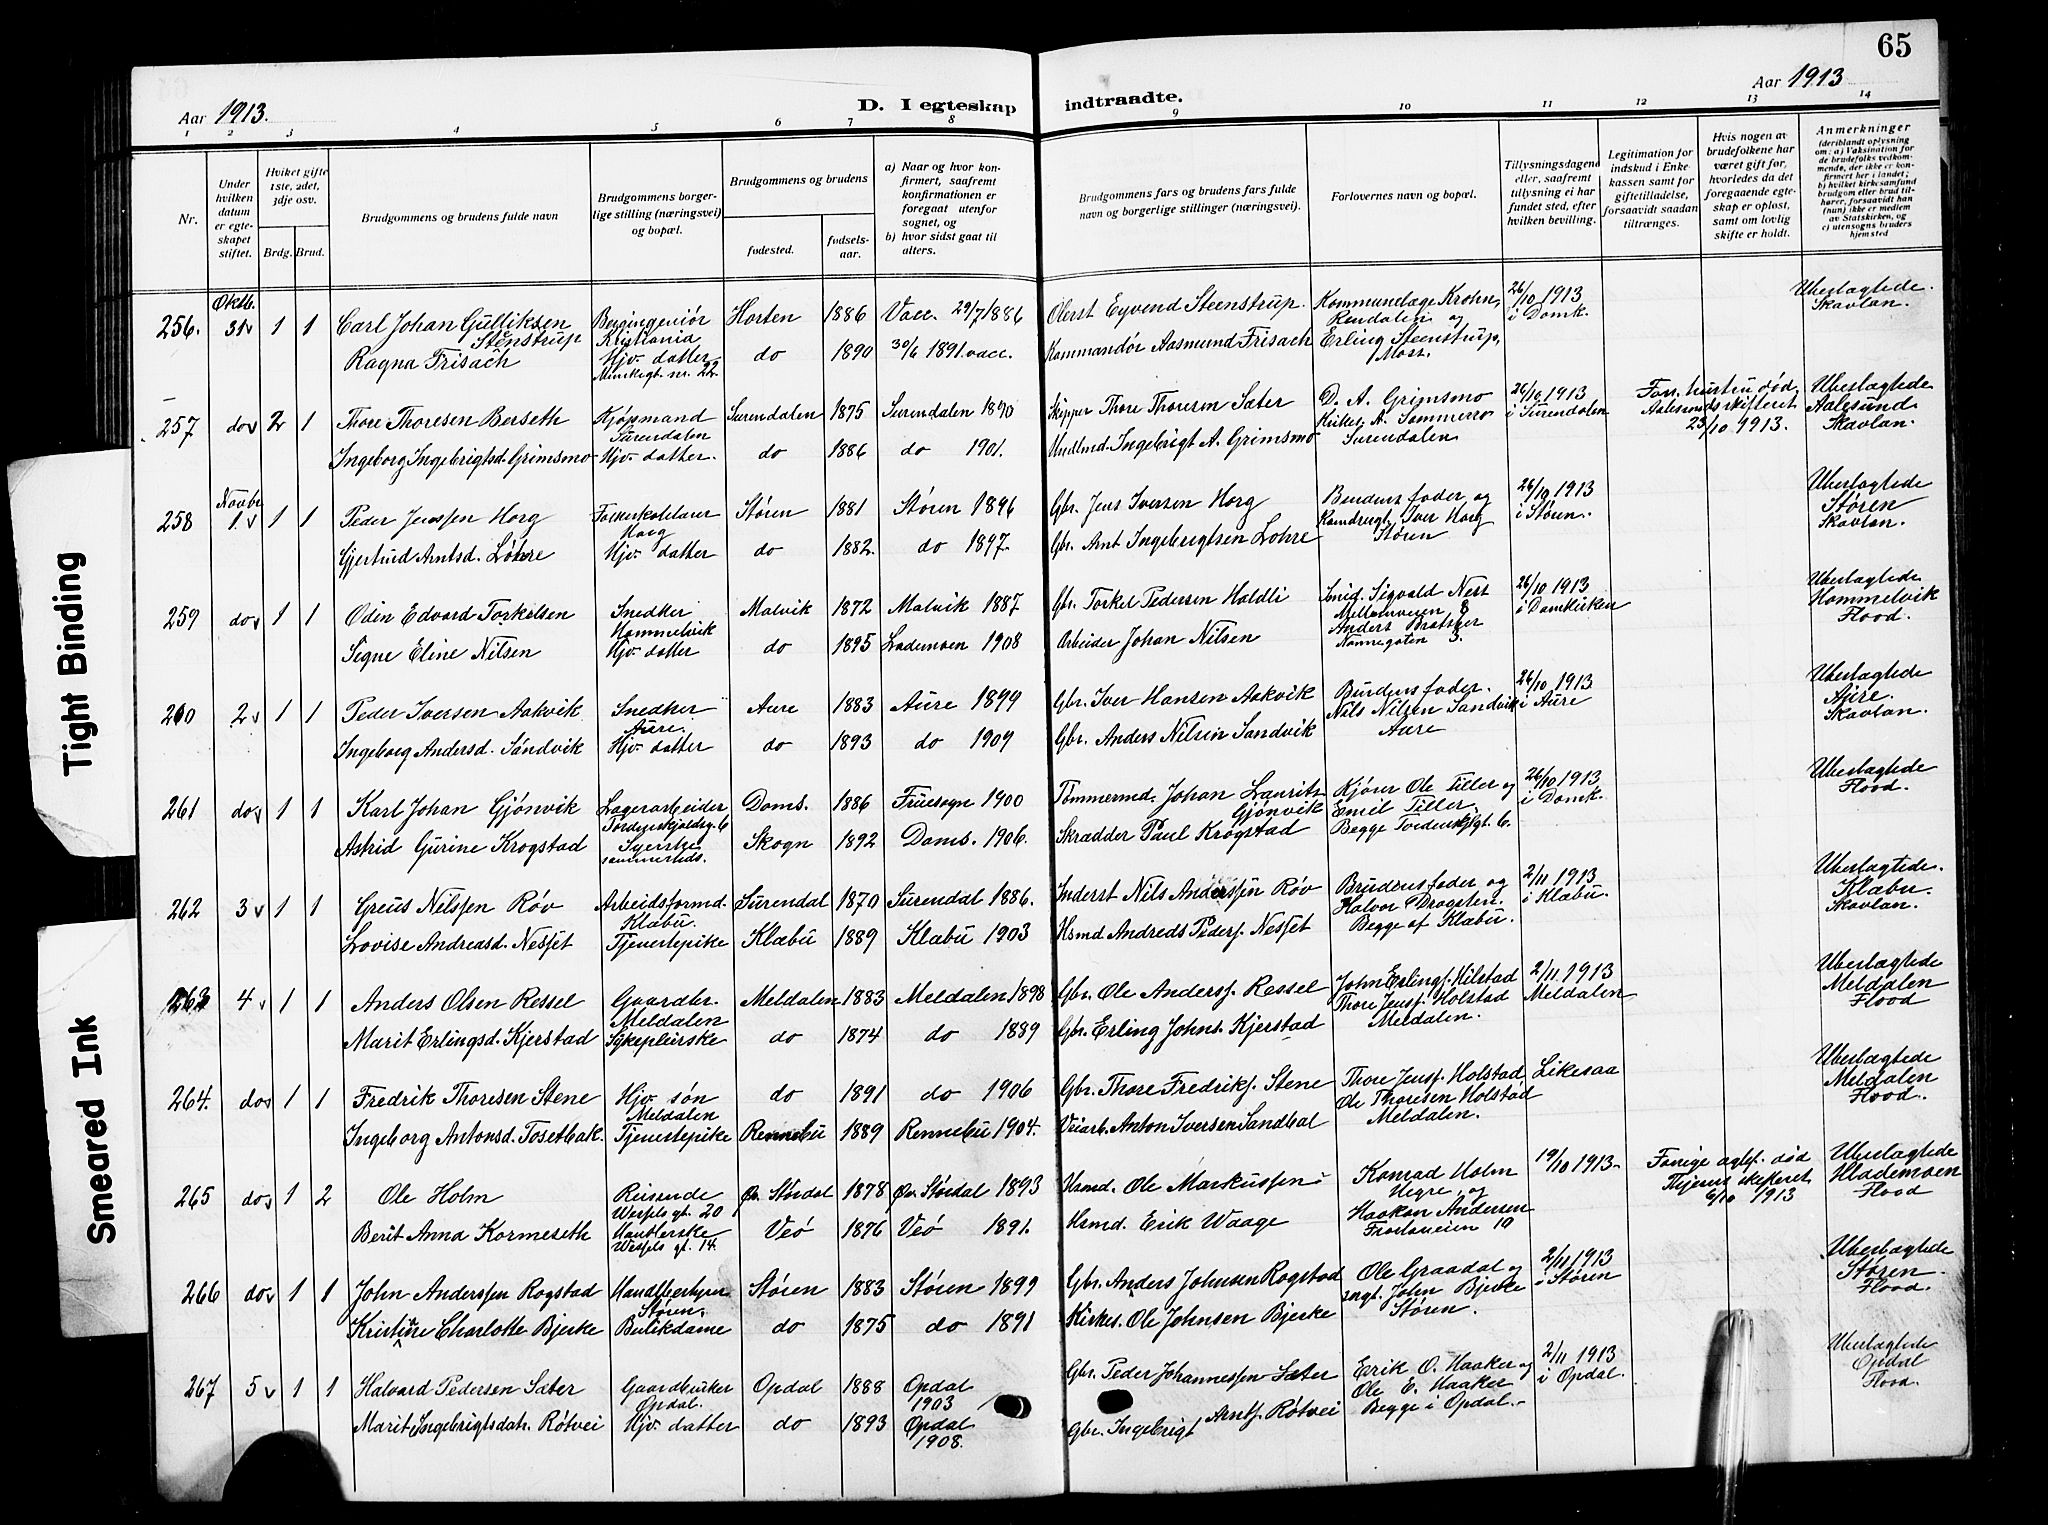 65
Aar 1913.
D. I egteskap indtraadte.
Aar 1913
1 2 3 4 5 6 7 8 9 10 11 12 13 14
Nr.
Under hvilken datum er egteskapet stiftet.
Hvilket gifte 1ste, 2det, 3dje osv.
Brdg. Brud.
Brudgommens og brudens fulde navn
Brudgommens borgerlige stilling (næringsvei) og bopæl.
Brudgommens og brudens
fødested.
fødselsaar.
a) Naar og hvor konfirmert, saafremt konfirmationen er foregaat utenfor sognet, og
b) hvor sidst gaat til alters.
Brudgommens fars og brudens fars fulde navn og borgerlige stillinger (næringsvei).
Forlovernes navn og bopæl.
Tillysningsdagene eller, saafremt tillysning ei har fundet sted, efter hvilken bevilling.
Legitimation for indskud i Enkekassen samt for giftetilladelse, forsaavidt saadan tiltrænges.
Hvis nogen av brudefolkene har været gift før, hvorledes da det foregaaende egteskap er opløst, samt om lovlig skifte er holdt.
Anmerkninger (deriblandt oplysning om: a) Vaksination for de brudefolks vedkommende, der ikke er konfirmert her i landet; b) hvilket kirkesamfund brudgom eller brud tilhører, forsaavidt han (hun) ikke er medlem av Statskirken, og c) utensogns bruders hjemsted
Oktb.
256. 31 1 1 Carl Johan Gulliksen Stenstrup Bergingeniør Kristiania Horten 1886 Vacc. 29/7 1886 Oberst Eyvend Steenstrup. Kommunelæge Krohn, Rendalen og 26/10 1913 i Domk. Ubeslægtede. Skavlan.
Ragna Frisach Hjv. datter Munkegt. nr. 22 do 1890 30/6 1891 vacc. Kommandør Aasmund Frisach Erling Steenstrup, Moss.
257 do 2 1 Thore Thoresen Berseth Kjøpmand Surendalen Surendalen 1875 Surendalen 1890 Skipper Thore Thoresen Sæter D. A. Grimsmo 26/10 1913 i Surendalen Forr. hustru død, Aalesunds skifteret 23/10 1913. Ubeslægtede Aalesund. Skavlan.
Ingeborg Ingebrigtsd. Grimsmo Hjv. datter. do 1886 do 1901. Ingebrigt A. Grimsmo Surendalen
Novbr.
258 1 1 1 Peder Jenssen Horg Folkeskolelærer Horg Støren 1881 Støren 1896 Gbr. Jens Iversen Horg Brudens fader og Iver Horg 26/10 1913 i Støren. Ubeslægtede Støren Skavlan.
Gjertrud Arntsd. Løhre Hjv. datter do 1882. do 1897. Gbr. Arnt Ingebrigtsen Lohre Støren
259 do 1 1 Oden Edvard Torkelsen Snedker Hommelvik Malvik 1872 Malvik 1887 Gbr. Torkel Pedersen Haldli Smid. Sigvald Nest Mellemveien 8 26/10 1913 i Domkirken Ubeslægtede Hommelvik Flood.
Signe Eline Nilsen Hjv. datter do 1895 Lademoen 1908 Arbeider Johan Nilsen Anders Brotsker Nonnegaten 3.
260 2 1 1 Peder Iversen Aakvik Snedker Aure. Aure 1883 Aure 1899 Gbr. Iver Hansen Aakvik Brudens fader. Nils Nilsen Sandvik 26/10 1913 i Aure Ubeslægtede Aure. Skavlan.
Ingeborg Andersd. Sandvik Hjv. datter do 1893 do 1909 Gbr. Anders Nilsen Sandvik Aure
261 do 1 1 Karl Johan Gjønvik Lagerarbeider Tordenskjoldsg. 6 Doms. 1886 Fruesogn 1900 Tømmermd. Johan Laurits Gjønvik Kjører Ole Tiller og Emil Tiller, 26/10 1913 i Domk. Ubeslægtede Flood.
Astrid Gurine Krogstad Syerske sammesteds. Skogn 1892 Doms. 1906. Skrædder Paul Krogstad Begge Tordenskjlgt. 6.
262 3 1 1 Greus Nilssen Røv Arbeidsformd. Klæbu. Surendal 1870 Surendal 1886. Inderst Nils Anderssen Røv Brudens fader og Halvor Dragsten. 2/11 1913 i Klæbu. Ubeslægtede. Klæbu. Skavlan.
Lovise Andreasd. Nesset Tjenestepike Klæbu 1889 Klæbu 1903 Hsmd Andreas Peders. Nesset Begge af Klæbu.
263 4 1 1 Anders Olsen Ressel Gaardbr. Meldalen Meldalen 1883 Meldalen 1898 Gbr. Ole Anderss. Ressel John Erlings. Hilstad Thore Jens. Holstad 2/11. 1913 Meldalen Ubeslægtede Meldalen Flood
Marit Erlingsd. Kjerstad Sykepleirske do 1874 do 1889 Gbr. Erling Johns. Kjerstad Meldalen.
264. do 1 1 Fredrik Thoresen Stene Hjv. søn Meldalen do 1891 do 1906 Gbr. Thore Fredriks. Stene Thore Jens. Holstad Ole Thoresen Holstad Likesaa Ubeslægtede Meldalen Flood.
Ingeborg Antonsd. Tosetbak Tjenestepike Rennebu 1889 Rennebu 1904. Veiarb. Anton Iversen Sandbal Meldalen.
265 do 1 2 Ole Holm Reisende Wessels gt. 20 Øv. Stördal 1878 Øv. Stördal 1893 Hsmd. Ole Markussen Konrad Holm Hegre og 19/10 1913. Forrige egtef. død Skifteret 6/10 1913 Ubeslægtede Hlademoen Flood
Berit Anna Kormeseth Wessels gt. 14. Veö 1876 Veö 1891. Hsmd. Erik Waage Haakon Andersen 10
266 do 1 1 John Anderssen Rogstad Handelbestyrer Støren. Støren 1883 Støren 1899 Gbr. Anders Johnsen Rogstad Ole Graadal og John Bjerke 2/11 1913 i Støren Ubeslægtede Støren. Flood.
Kristine Charlotte Bjerke Butikdame do 1875 do 1891 Kirkes. Ole Johnsen Bjerke Støren.
267 5 1 1 Halvard Pedersen Sæter Gaardbruker Opdal. Opdal 1888 Opdal 1903 Gbr. Peder Johannessen Sæter Erik O. Haaker og Ole E. Haaker 2/11 1913 i Opdal. Ubeslægtede Opdal Flood.
Marit Ingebrigtsdatr. Røtvei Hjv. datter do 1893 Opdal 1908. Gbr. Ingebrigt Arnts. Røtvei Begge i Opdal.
Tight Binding
Smeared Ink